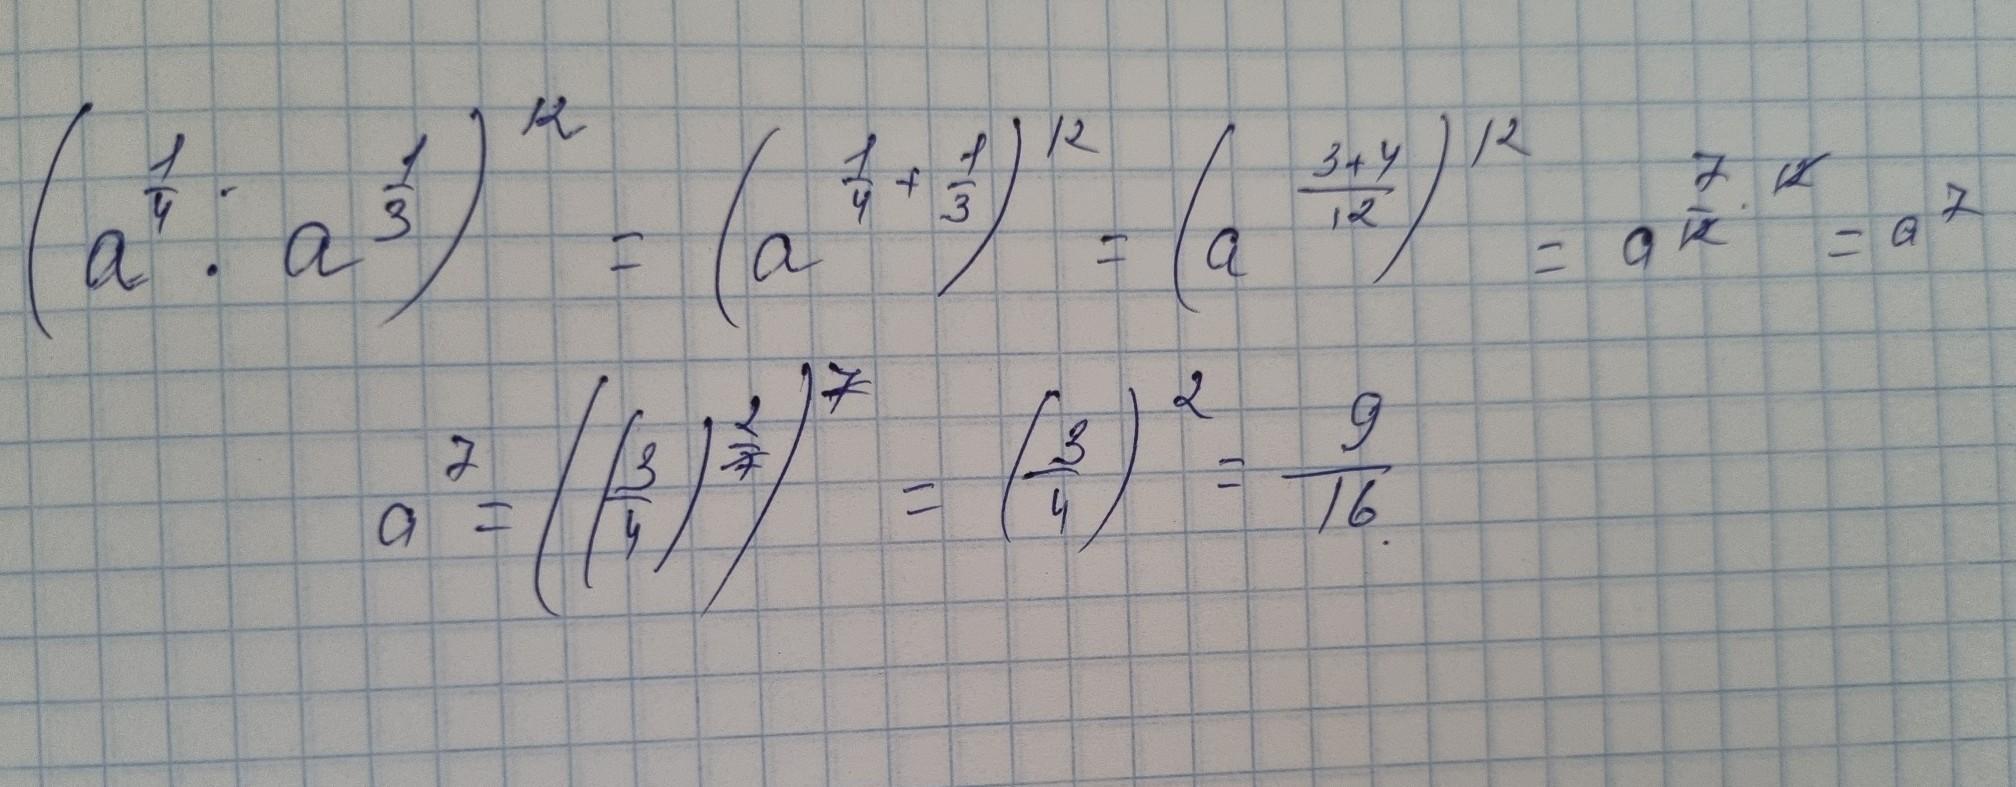 (a^(1/4) : a^(1/3))^12 = (a^(1/4 + 1/3))^12 = (a^((3+4)/12))^12 = a^(7/12 · 12) = a^7
a^7 = ((3/4)^(2/7))^7 = (3/4)^2 = 9/16.